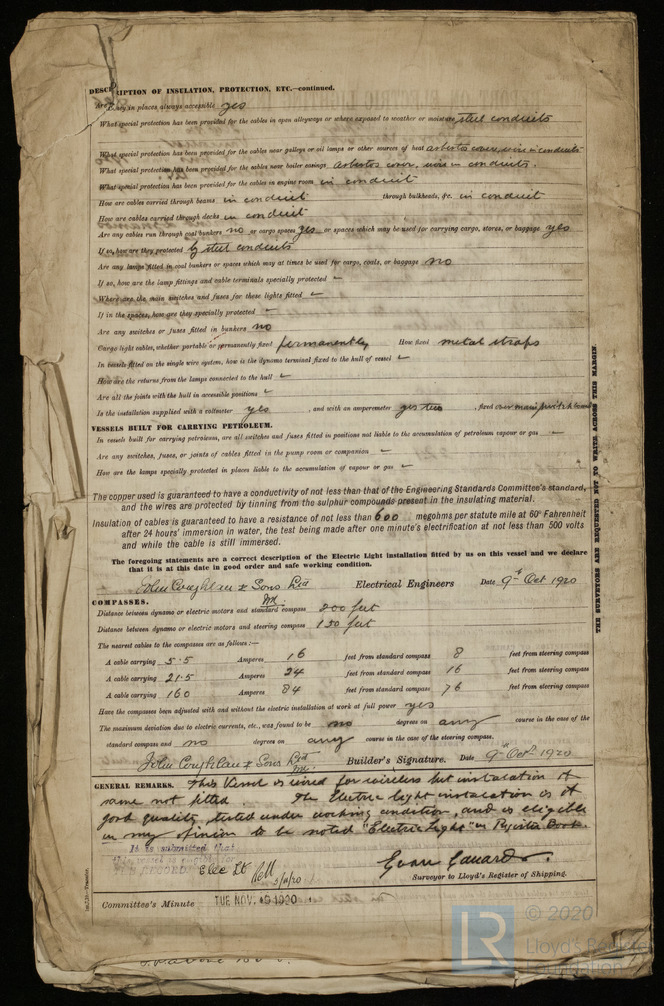 DESCRIPTION OF INSULATION, PROTECTION, ETC.—continued.
Are they in places always accessible yes
What special protection has been provided for the cables in open alleyways or where exposed to weather or moisture steel conduits
What special protection has been provided for the cables near galleys or oil lamps or other sources of heat asbestos cover, wire in conduits
What special protection has been provided for the cables near boiler casings asbestos cover, wire in conduits.
What special protection has been provided for the cables in engine room in conduit
How are cables carried through beams in conduit through bulkheads, &c. in conduit
How are cables carried through decks in conduit
Are any cables run through coal bunkers no or cargo spaces yes or spaces which may be used for carrying cargo, stores, or baggage yes
If so, how are they protected by steel conduits
Are any lamps fitted in coal bunkers or spaces which may at times be used for cargo, coals, or baggage no
If so, how are the lamp fittings and cable terminals specially protected
Where are the main switches and fuses for these lights fitted
If in the spaces, how are they specially protected
Are any switches or fuses fitted in bunkers no
Cargo light cables, whether portable or permanently fixed permanently How fixed metal straps
In vessels fitted on the single wire system, how is the dynamo terminal fixed to the hull of vessel
How are the returns from the lamps connected to the hull
Are all the joints with the hull in accessible positions
Is the installation supplied with a voltmeter yes, and with an amperemeter yes two, fixed on main switch board
VESSELS BUILT FOR CARRYING PETROLEUM.
In vessels built for carrying petroleum, are all switches and fuses fitted in positions not liable to the accumulation of petroleum vapour or gas
Are any switches, fuses, or joints of cables fitted in the pump room or companion
How are the lamps specially protected in places liable to the accumulation of vapour or gas
The copper used is guaranteed to have a conductivity of not less than that of the Engineering Standards Committee's standard,
and the wires are protected by tinning from the sulphur compounds present in the insulating material.
Insulation of cables is guaranteed to have a resistance of not less than 600 megohms per statute mile at 60° Fahrenheit
after 24 hours' immersion in water, the test being made after one minute's electrification at not less than 500 volts
and while the cable is still immersed.
The foregoing statements are a correct description of the Electric Light installation fitted by us on this vessel and we declare
that it is at this date in good order and safe working condition.
John Coughlan & Sons Ltd Electrical Engineers Date 9th Oct 1920
COMPASSES.
Distance between dynamo or electric motors and standard compass 200 feet
Distance between dynamo or electric motors and steering compass 150 feet
The nearest cables to the compasses are as follows:—
A cable carrying 5.5 Amperes 16 feet from standard compass 8 feet from steering compass
A cable carrying 21.5 Amperes 24 feet from standard compass 16 feet from steering compass
A cable carrying 160 Amperes 84 feet from standard compass 76 feet from steering compass
Have the compasses been adjusted with and without the electric installation at work at full power yes
The maximum deviation due to electric currents, etc., was found to be no degrees on any course in the case of the
standard compass and no degrees on any course in the case of the steering compass.
John Coughlan & Sons Ltd Builder's Signature. Date 9th Oct 1920
GENERAL REMARKS. This Vessel is wired for wireless but instalation of
same not fitted. The Electric light instalation is of
good quality, tested under working condition, and is eligible
in my opinion to be noted "Electric Light" in Register Book.
It is submitted that
this vessel is eligible for
THE RECORD Elec Lt 5/11/20
Evan Edwards.
Surveyor to Lloyd's Register of Shipping.
Committee's Minute TUE. NOV. 16 1920
THE SURVEYORS ARE REQUESTED NOT TO WRITE ACROSS THIS MARGIN.
LR © 2020
Lloyd's Register
Foundation